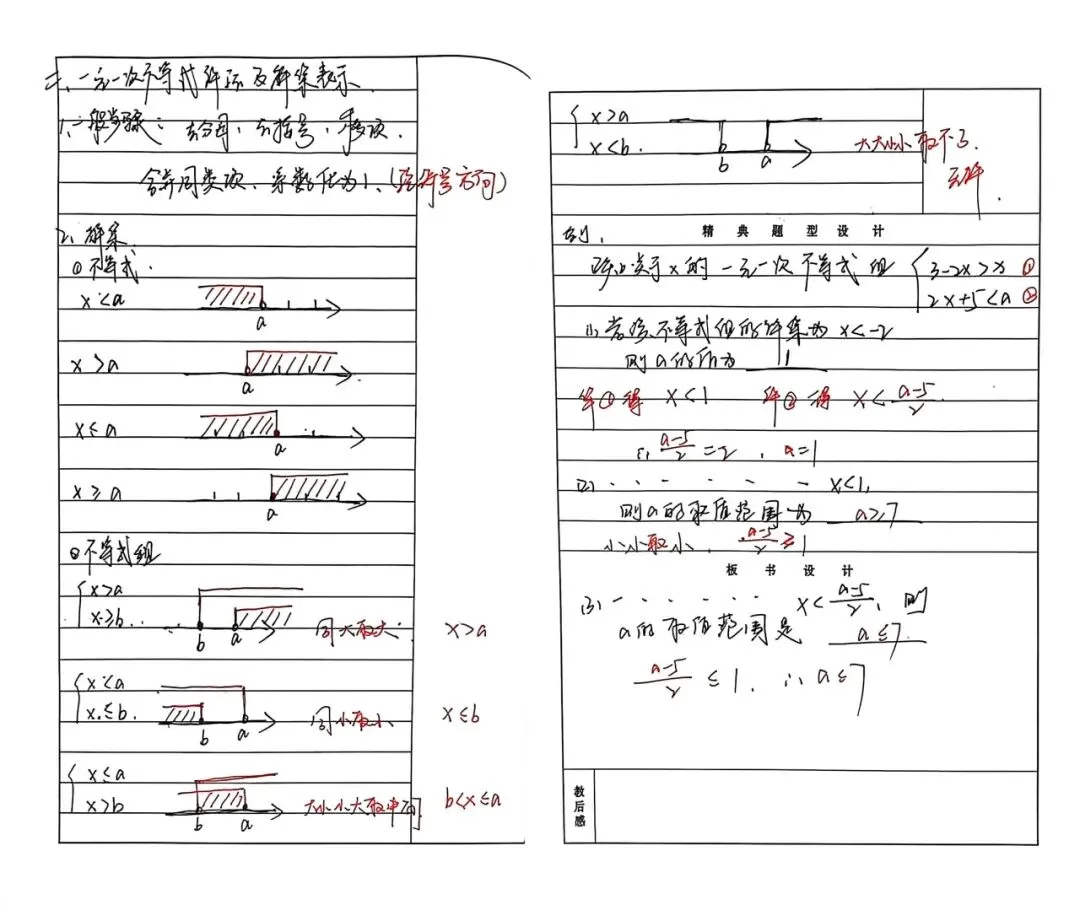 二、一元一次不等式解法及解集表示.
1、一般步骤: 去分母, 去括号, 移项.
合并同类项、系数化为1、(注意符号方向)
2、解集.
①不等式.
x<a
a
x>a
a
x≤a
a
x≥a
a
②不等式组
{ x>a
x≥b.
b a 同大取大: x>a
{ x<a
x≤b.
b a 同小取小 x≤b
{ x≤a
x>b
b a 大小小大取中间 b<x≤a
{ x>a
x<b.
b a 大大小小取不了.
无解.
精典题型设计
例1.
已知关于x的一元一次不等式组 { 3-2x>x ①
2x+5<a ②
(1)若该不等式组的解集为x<-2
则a的值为 1
解①得 x<1 解②得 x<\frac{a-5}{2}.
∴\frac{a-5}{2}=-2, a=1
(2). . . . . - x<1,
则a的取值范围为 a≥7
小小取小, \frac{a-5}{2}≥1
板书设计
(3). - . . . . . x<\frac{a-5}{2}, 则
a的取值范围是 a≤7.
\frac{a-5}{2}≤1. ∴a≤7
教后感